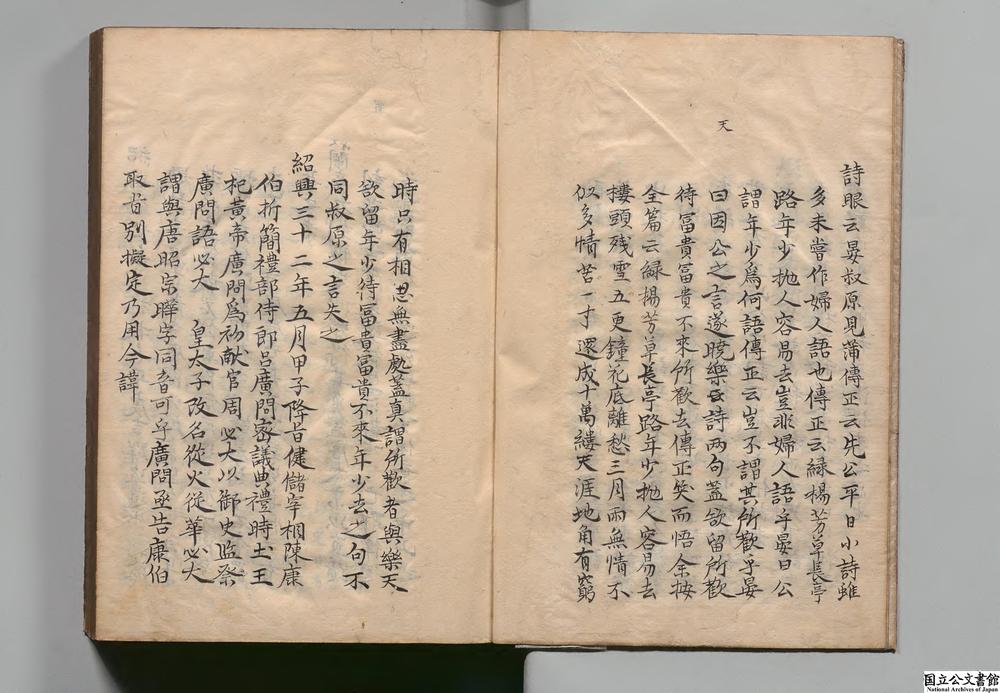 天
詩眼云晏叔原見蒲傳正云先公平日小詩雖
多未嘗作婦人語也傳正云緑楊芳草長亭
路年少抛人容易去豈非婦人語乎晏曰公
謂年少爲何語傳正云豈不謂其所歡乎晏
曰因公之言遂曉樂天詩兩句蓋欲留所歡
待冨貴冨貴不來所歡去傳正笑而悟余按
全篇云緑楊芳草長亭路年少抛人容易去
樓頭残雲五更鐘花底離愁三月雨無情不
似多情苦一寸還成十萬縷天涯地角有窮
時只有相思無盡處蓋真謂所歡者與樂天
欲留年少待冨貴冨貴不來年少去之句不
同叔原之言失之
紹興三十二年五月甲子降旨健儲宰相陳康
伯折簡禮部侍郎呂廣問密議典禮時土王
祀黃帝廣問爲初献官周必大以御史監祭
廣問語必大 皇太子改名從火從華必大
謂與唐昭宗曄字同音可乎廣問亟告康伯
取旨別擬定乃用今諱
国立公文書館
National Archives of Japan